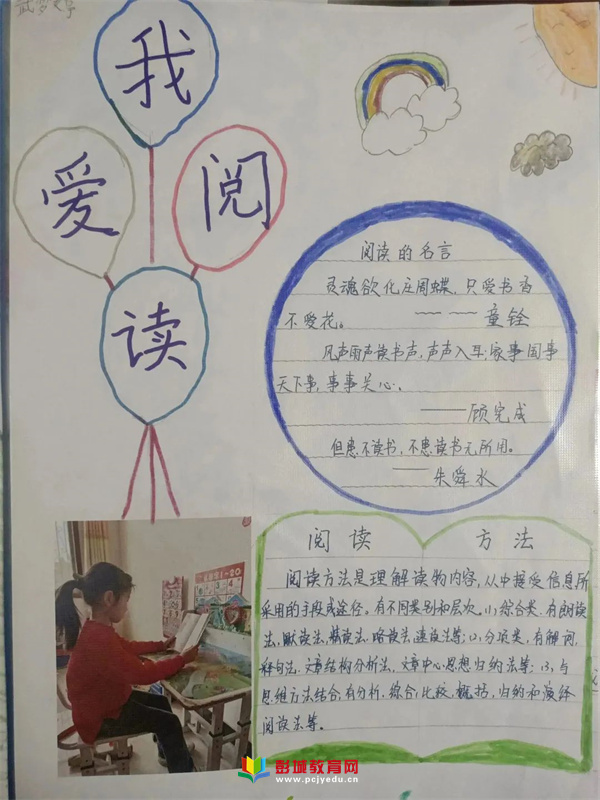 我
爱
阅
读
阅读的名言
灵魂欲化庄周蝶,只爱书香
不爱花。
——童铨
风声雨声读书声,声声入耳;家事国事
天下事,事事关心。
——顾完成
但患不读书,不患读书无所用。
——朱舜水
阅读 方法
阅读方法是理解读物内容,从中接受信息所
采用的手段或途径。有不同类别和层次。(1)综合类,有朗读
法,默读法,精读法,略读法,速读法等;(2)分项类,有解词,
释句法,文章结构分析法,文章中心思想归纳法等;(3)与
思维方法结合,有分析,综合,比较,概括,归纳和演绎
阅读法等。
1-20
彭城教育网
www.pcjyedu.cn